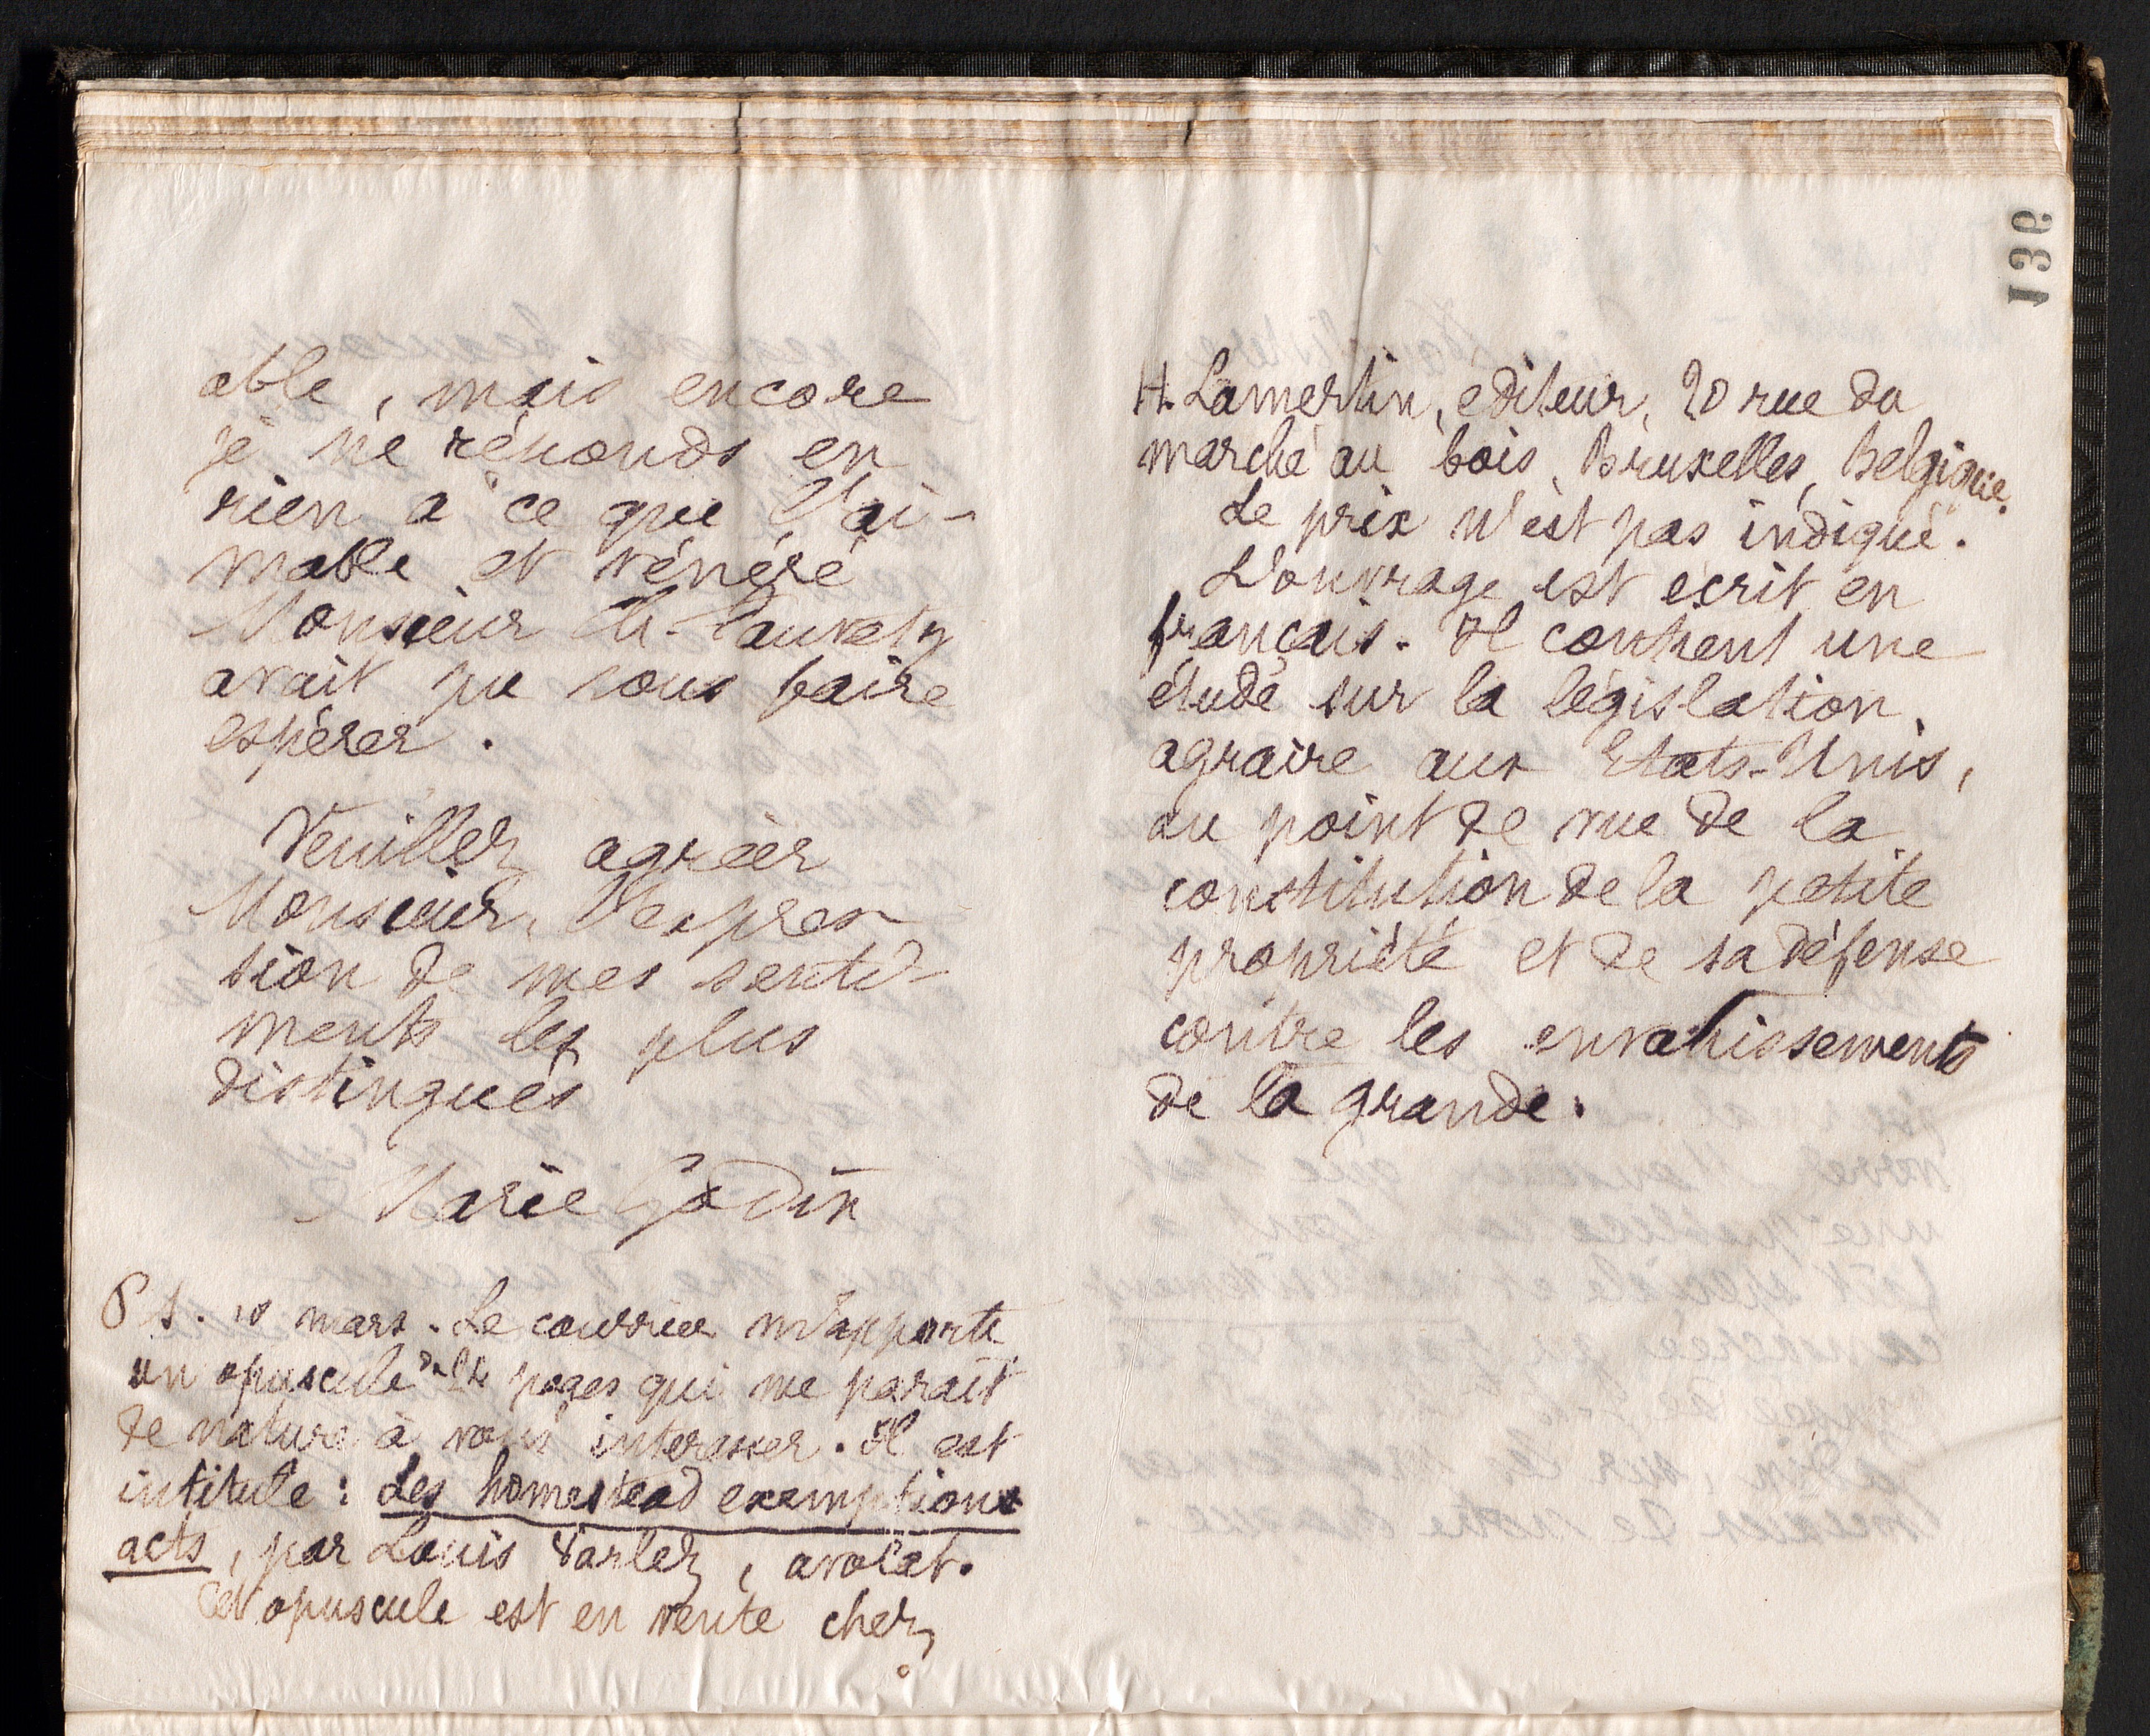 able, mais encore
je ne réponds en
rien à ce que l'ai-
mable et vénéré
Monsieur Ch. Fauvety
avait pu vous faire
espérer.
Veuillez agréer
Monsieur, l'expres-
sion de mes senti-
ments les plus
distingués
Marie Godin
P S. 18 mars. Le courrier m'apporte
un opuscule de pages qui me parait
de nature à vous interesser. Il est
intitulé : Les homestead exemptions
acts, par Louis Varlez, avocat.
Cet opuscule est en vente chez
136
H. Lamertin, editeur, 20 rue du
marché au bois, Bruxelles, Belgique.
Le prix n'est pas indiqué.
L'ouvrage est écrit en
français. Il contient une
étude sur la législation
agraire aux Etats-Unis,
au point de vue de la
constitution de la petite
propriété et de sa défense
contre les envahissements
de la grande.